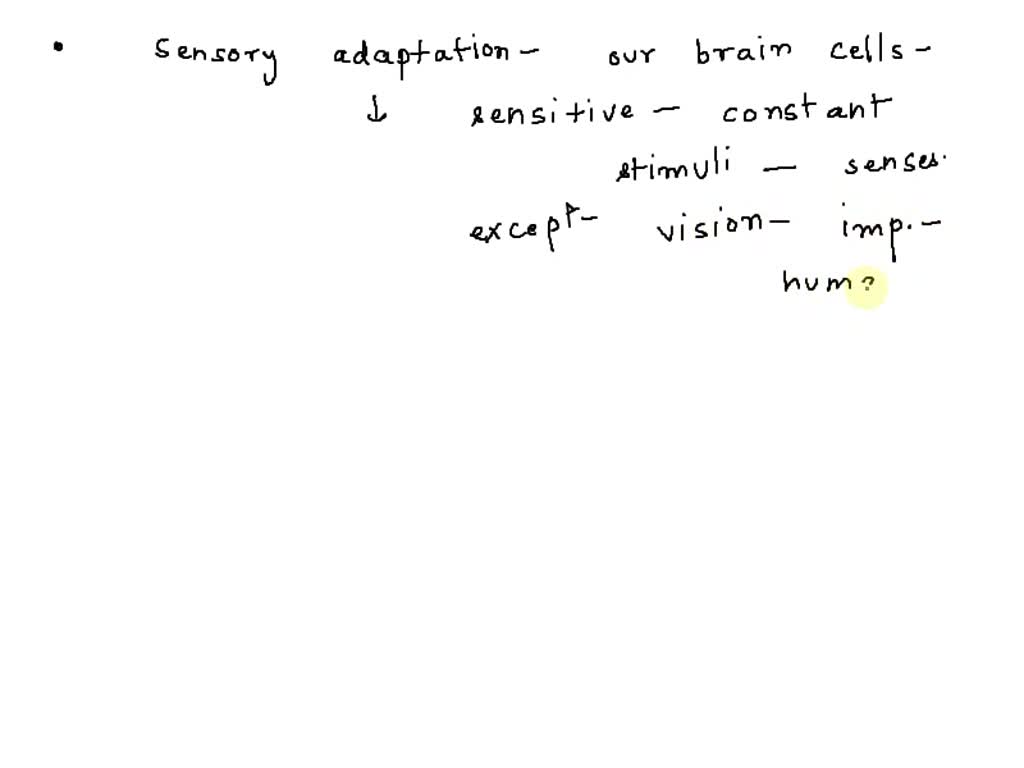 • Sensory adaptation - our brain cells -
↓ sensitive - constant
stimuli - senses.
except - vision - imp. -
hum